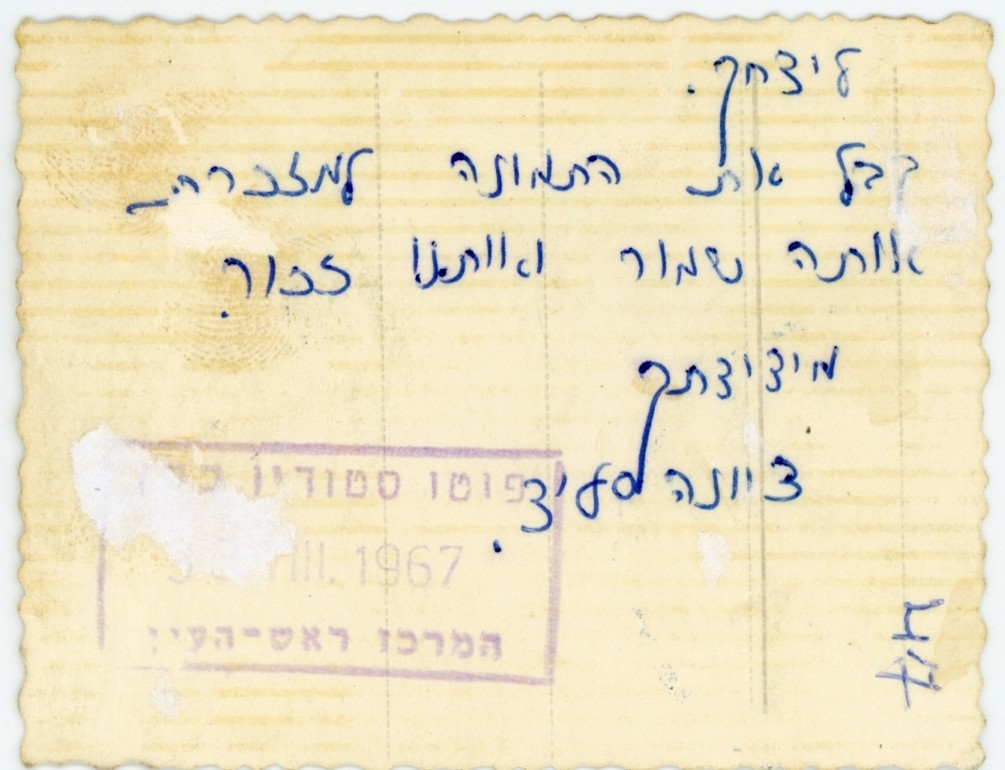 ליצחק.
קבל את התמונה למזכרה
אותה נשמור ואותנו זכור.
ציונה
פוטו סטודיו
III. 1967
המרכז ראש-העין